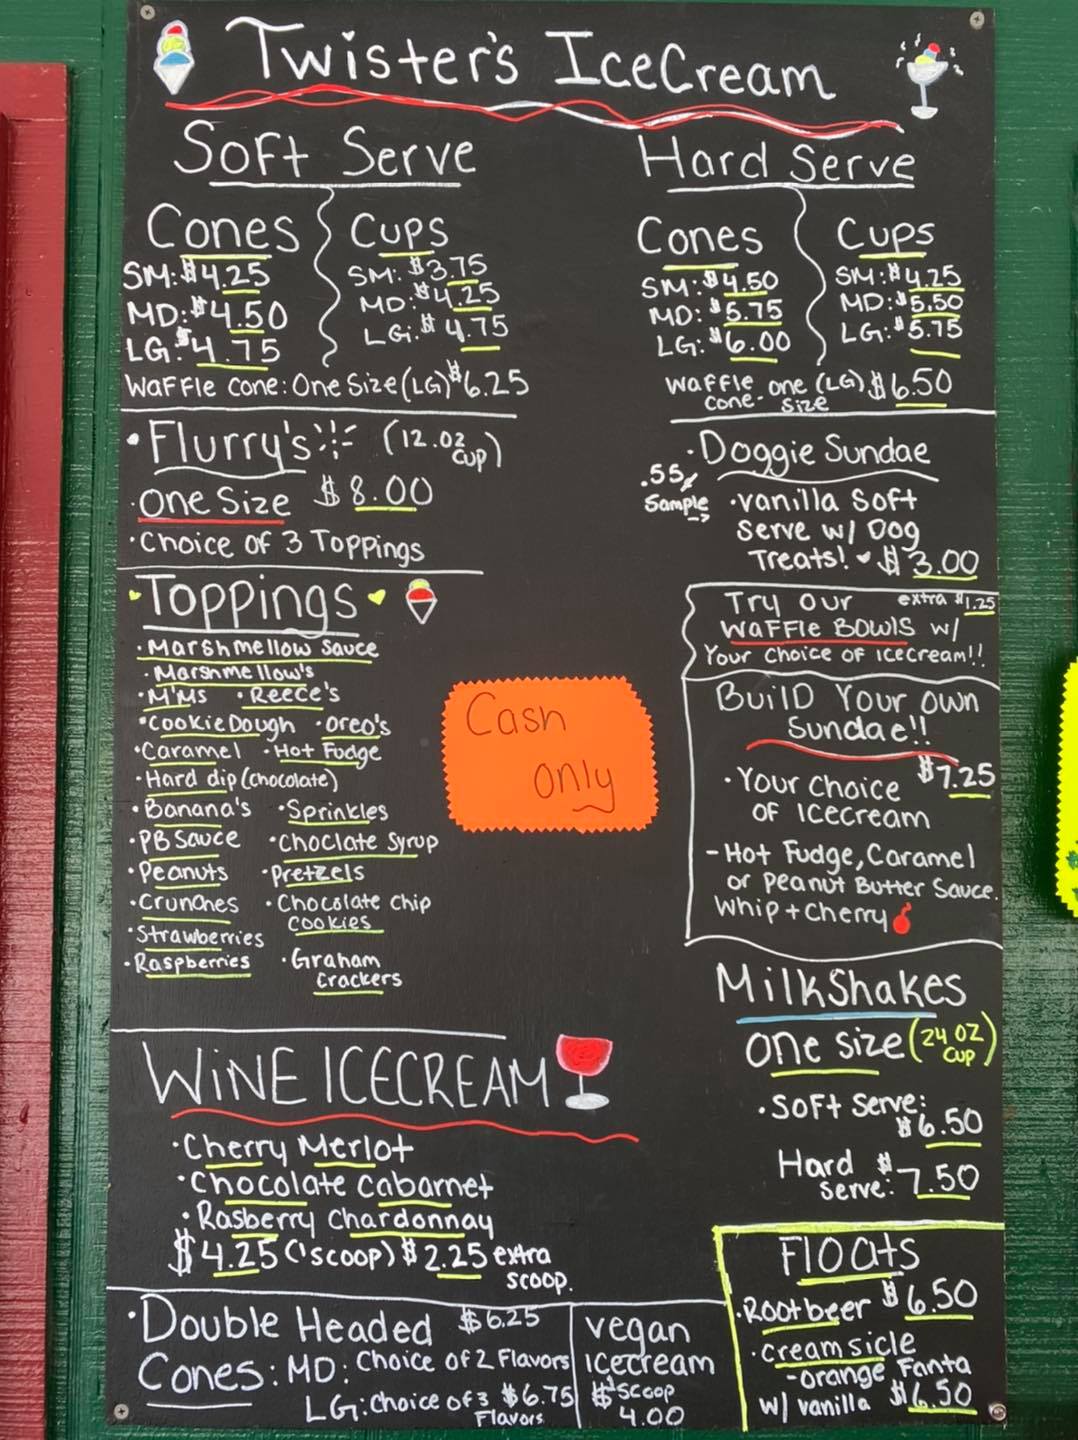 Twister's IceCream
Soft Serve
Cones
SM: $4.25
MD: $4.50
LG: $4.75
Cups
SM: $3.75
MD: $4.25
LG: $4.75
Waffle cone: One Size (LG) $6.25
Hard Serve
Cones
SM: $4.50
MD: $5.75
LG: $6.00
Cups
SM: $4.25
MD: $5.50
LG: $5.75
Waffle cone - one size (LG) $6.50
• Flurry's (12.oz cup)
• One Size $8.00
• Choice of 3 Toppings
• Doggie Sundae
.55¢
Sample →
• vanilla Soft
Serve w/ Dog
Treats! $3.00
Toppings
• Marshmellow Sauce
• Marshmellow's
• M'Ms • Reece's
• Cookie Dough • Oreo's
• Caramel • Hot Fudge
• Hard dip (chocolate)
• Banana's • Sprinkles
• PB Sauce • Choclate Syrup
• Peanuts • Pretzels
• Crunches • Chocolate Chip
Cookies
• Strawberries
• Raspberries • Graham
Crackers
Cash
only
Try our extra $1.25
Waffle Bowls w/
Your Choice of Icecream!!
Build Your Own
Sundae!!
$7.25
• Your Choice
of Icecream
- Hot Fudge, Caramel
or Peanut Butter Sauce.
Whip + Cherry
Milkshakes
One size (24 OZ cup)
• Soft Serve:
$6.50
Hard
Serve: $7.50
WINE ICECREAM
• Cherry Merlot
• Chocolate Cabarnet
• Rasberry Chardonnay
$4.25 (1 scoop) $2.25 extra
scoop.
Floats
• Rootbeer $6.50
• creamsicle
- orange Fanta
w/ vanilla $6.50
• Double Headed $6.25
Cones: MD: Choice of 2 Flavors
LG: Choice of 3 $6.75
Flavors
vegan
Icecream
$ 1 scoop
4.00